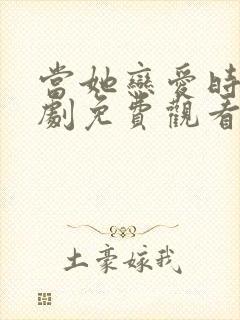 當她戀愛時
劇免費觀看
土豪嫁我